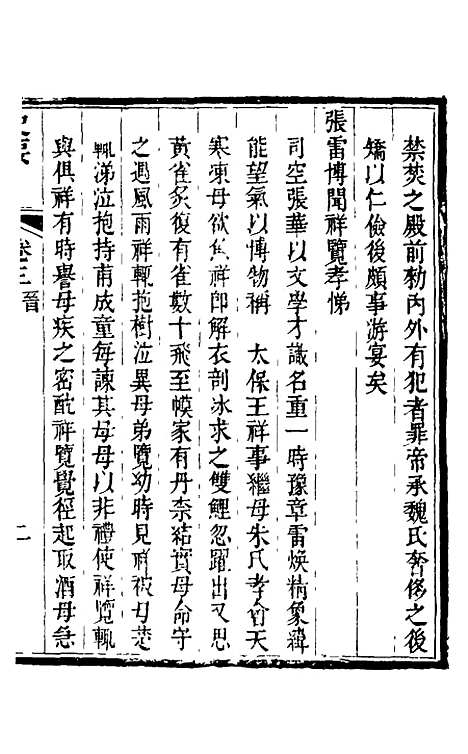 禁焚之殿前勑内外有犯者罪帝承魏氏奢侈之後
矯以仁儉後頗事游宴矣
張雷博聞祥覽孝悌
司空張華以文學才識名重一時豫章雷煥精象緯
能望氣以博物稱　太保王祥事繼母朱氏孝會天
寒凍母欲魚祥即解衣剖冰求之雙鯉忽躍出又思
黃雀炙復有雀數十飛至幙家有丹柰結實母命守
之遇風雨祥輒抱樹泣異母弟覽幼時見祥被母楚
輒涕泣抱持甫成童每諫其母母以非禮使祥覽輒
與俱祥有時譽母疾之密酖祥覽覺徑起取酒母急
卷三 晉
二